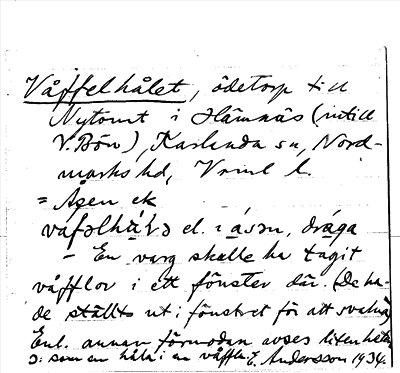 Våffelhålet, ödetorp till
Nytomt i Hämnäs (intill
V. Bön), Karlanda sn, Nord-
marks hd, Vrml l.
= Åsen ek
våfəlhúlə el. i åsən, dråga
- En varg skulle ha tagit
våfflor i ett fönster där. (De ha-
de ställts ut i fönstret för att svalna)
Enl. annan förmodan avses litenheten
ɔ: som en håla i en våffla. E. Andersson 1934.